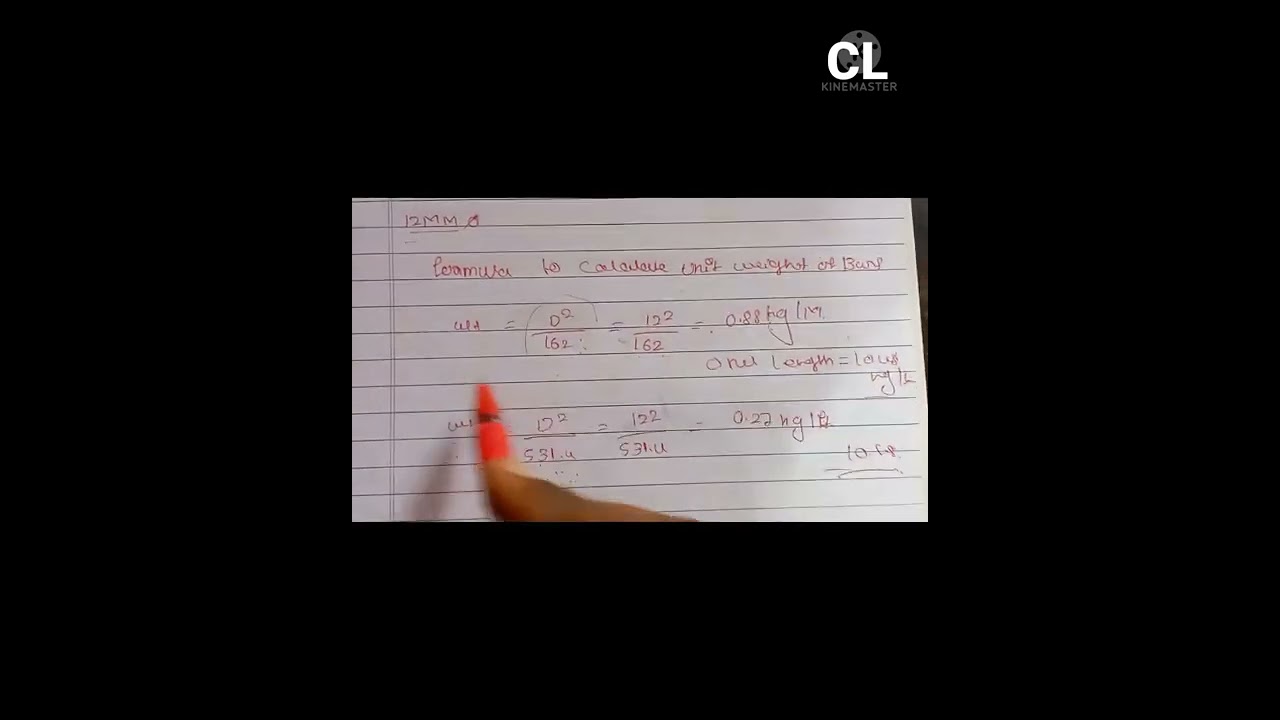 CL
KINEMASTER
12MM Ø
Formula to Calculate unit weight of Bars
wt = D²/162 = 12²/162 = 0.88 kg/M.
One Length =
kg/
D²/531.4 = 12²/531.4 - 0.27 kg/ft